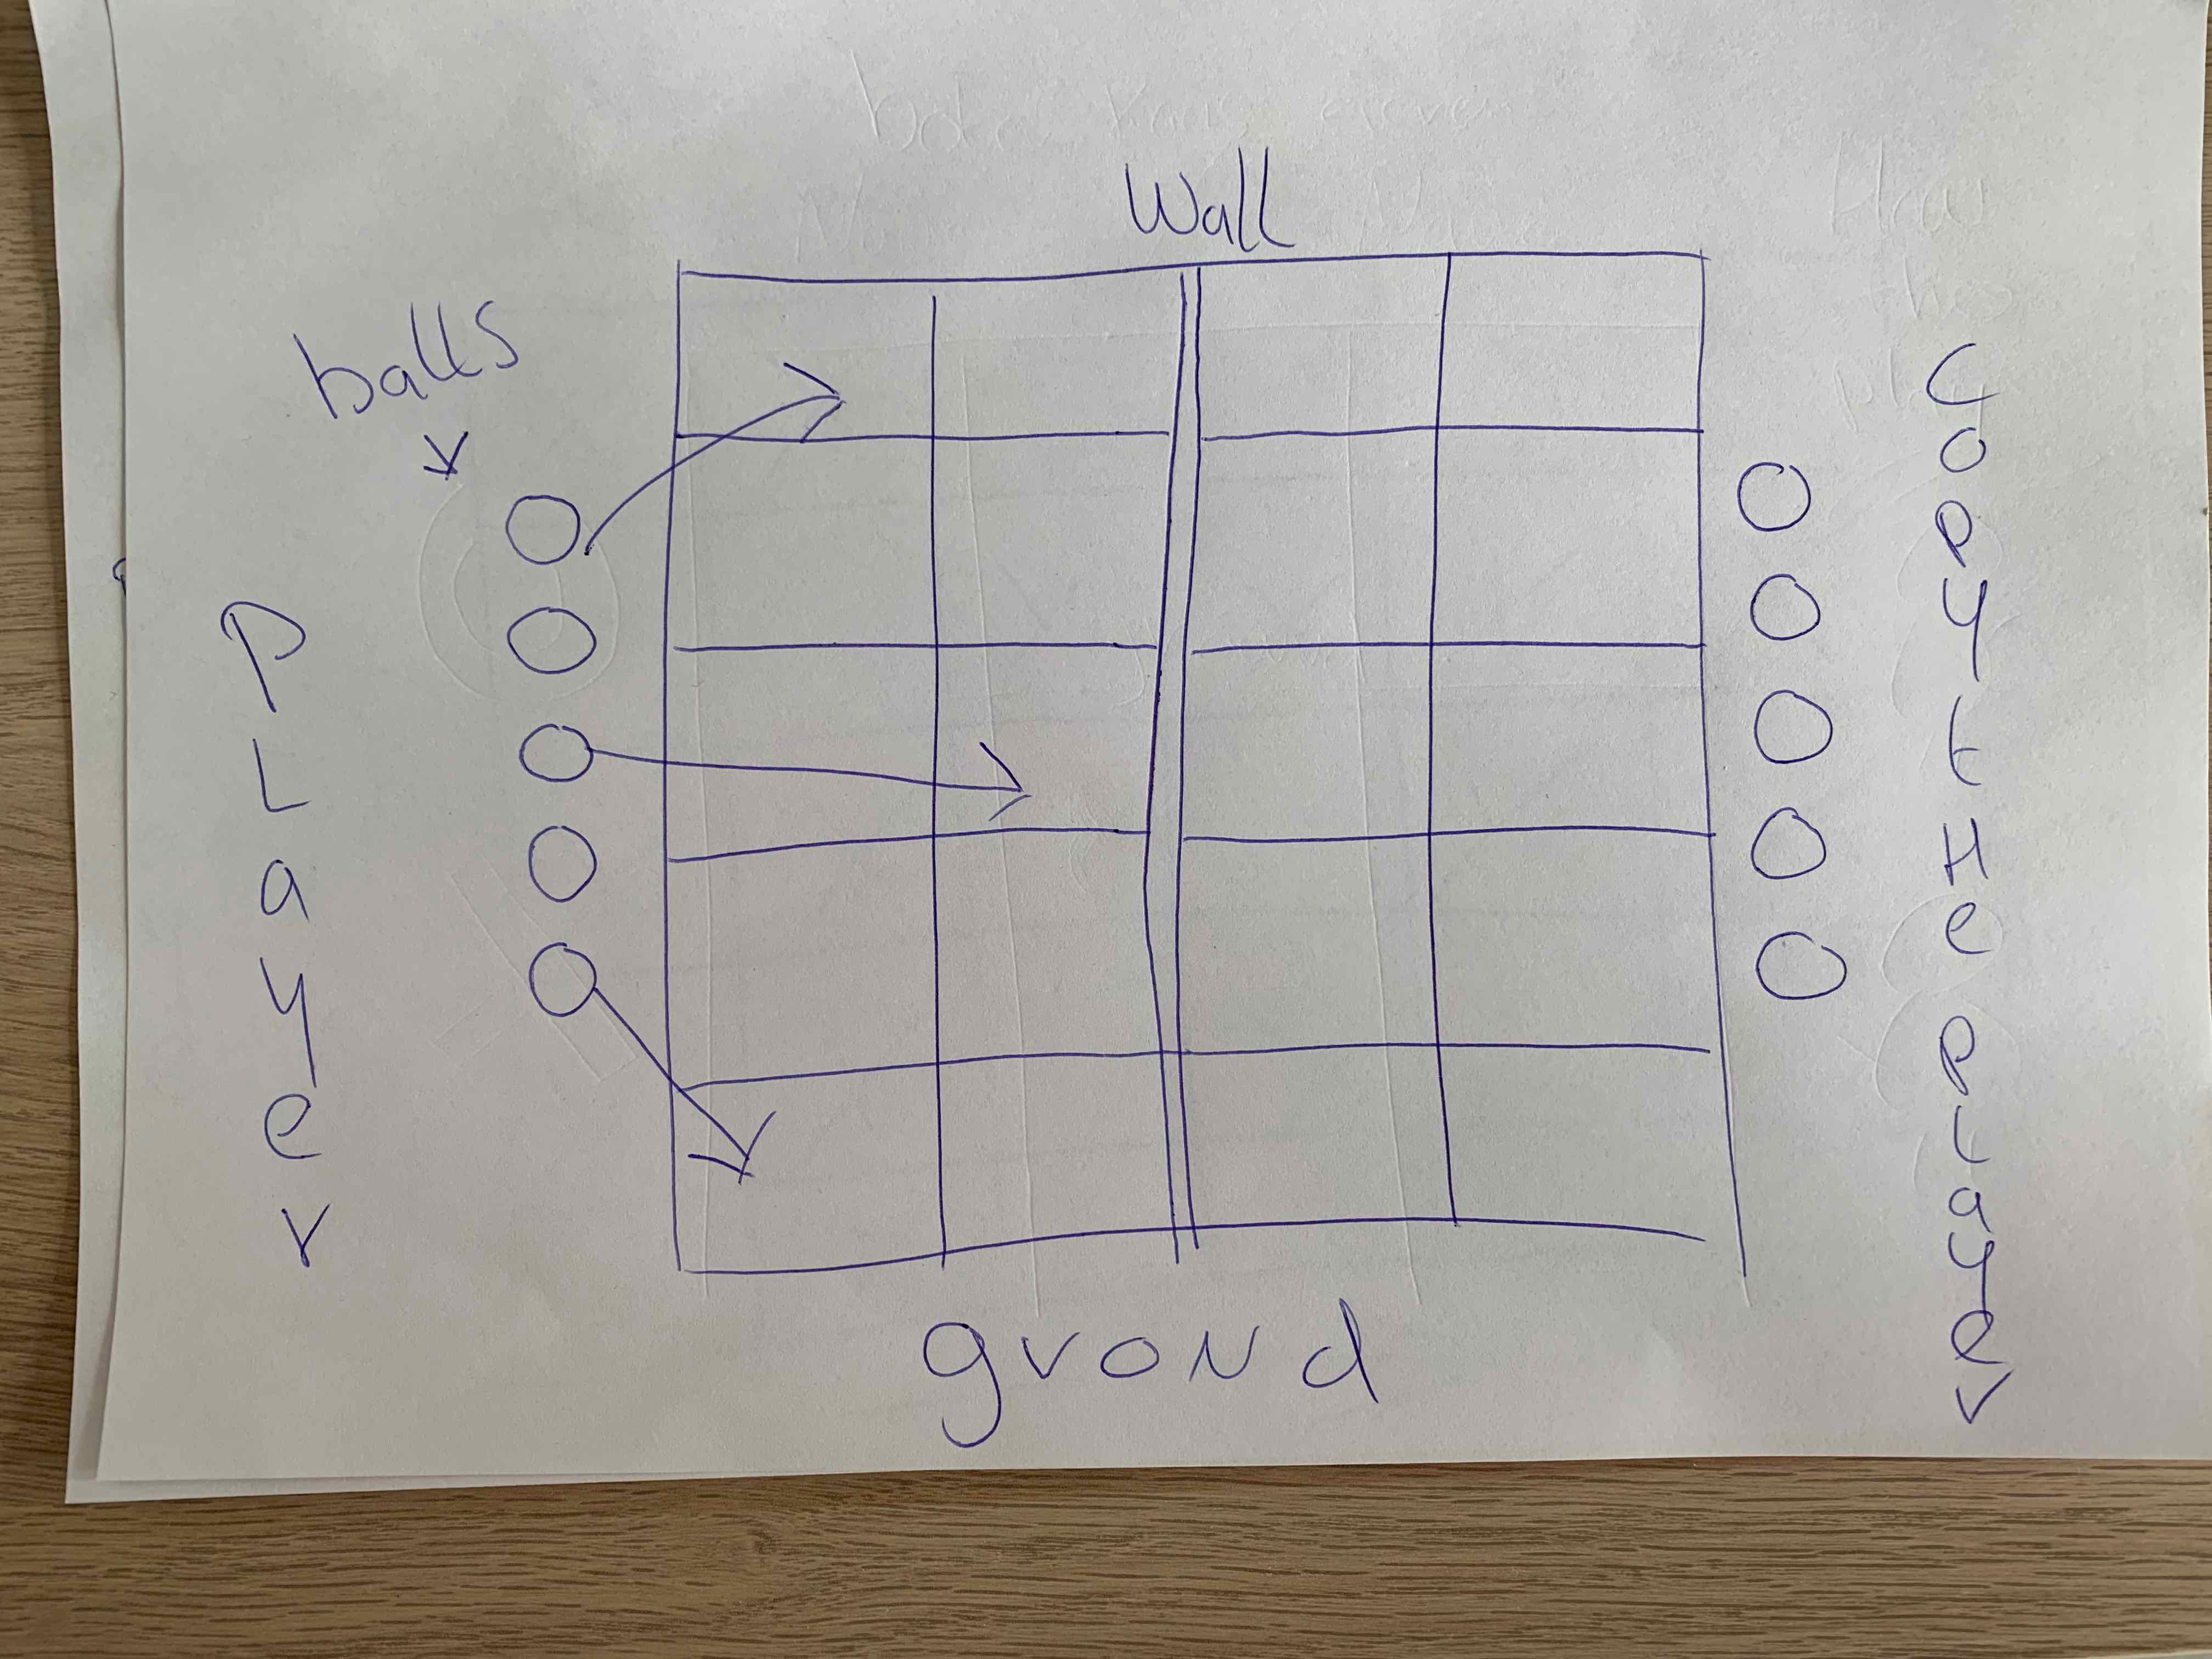 Wall
balls
PLayer
CoPY tHe PLayer
grond